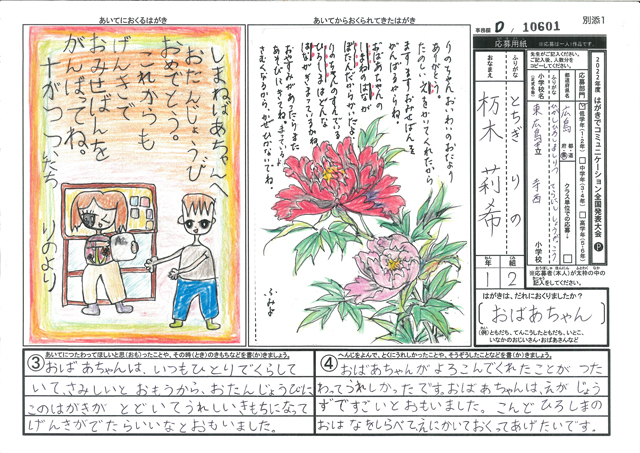 別添1
事務欄 D 10601
あいてにおくるはがき
しまねばあちゃんへ
おたんじょうび
おめでとう。
これからも
げんきで
おみせばんを
がんばってね。
十がつ
りのより
あいてからおくられてきたはがき
りのちゃん、おいわいのおたより
ありがとう。
たのしいえをかいてくれたから
ますますおみせばんを
がんばるからね。
おばあちゃんの
しまねのはなが
ぼたんだからかいたよ。
りのちゃんのすんでいる
ひろしまはどんな
はながさいているかね。
おやすみがあったらまた
あそびにきてね。まっているよ
さむくなるから、かぜひかないでね。
ふみよ
2022年度 はがきでコミュニケーション全国発表大会 P
応募用紙 ※応募は一人1作品です
先生がご記入ください。
ご記入後、人数分を
コピーしてください。
応募部門
低学年(1・2年)
中学年(3・4年)
高学年(5・6年)
都道府県名
広島
都・道
府・県
クラス単位での応募↓
小学校名
(正式名称)
東広島市立 寺西 小学校
ふりがな
とちぎ りの
おなまえ
栃木 莉希
1年
2組
※応募者(本人)が太枠の中の
記入をしてください。
はがきは、だれにおくりましたか?
おばあちゃん
(例)ともだち、てんこうしたともだち、いとこ、
いなかのおじいさん・おばあさんなど
③ あいてにつたわってほしいと思(おも)ったことや、その時(とき)のきもちなどを書(か)きましょう。
おばあちゃんは、いつもひとりでくらして
いて、さみしいとおもうから、おたんじょうびに
このはがきがとどいてうれしいきもちになって
げんきがでたらいいなとおもいました。
④ へんじをよんで、とくにうれしかったことや、そうぞうしたことなどを書(か)きましょう。
おばあちゃんがよろこんでくれたことがつた
わってうれしかったです。おばあちゃんは、えがじょう
ずですごいとおもいました。こんどひろしまの
おはなをしらべてえにかいておくってあげたいです。